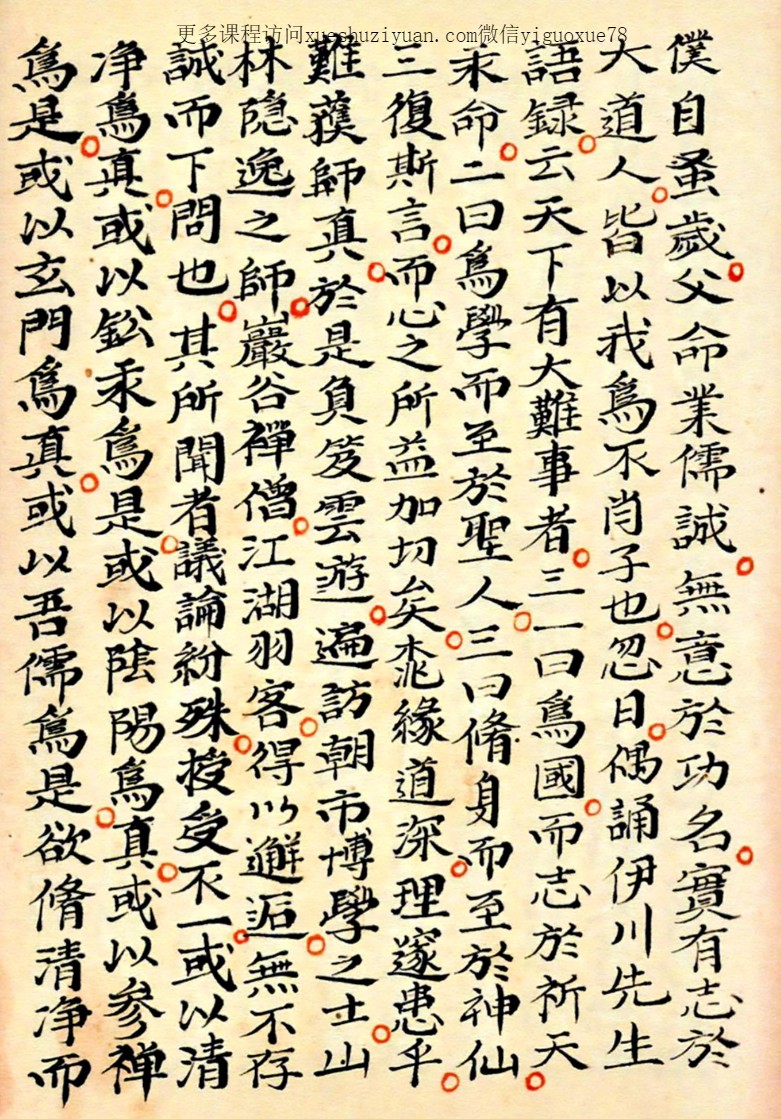 更多课程访问xueshuziyuan.com微信yiguoxue78
僕自蚤歲父命業儒誠無意於功名實有志於
大道人皆以我爲不肖子也忽日偶誦伊川先生
語録云天下有大難事者三一曰爲國而志於祈天
永命二曰爲學而至於聖人三曰脩身而至於神仙
三復斯言而心之所益加切矣柰緣道深理邃患乎
難蓌師真於是負笈雲遊遍訪朝市博學之士山
林隐逸之師巖谷禪僧江湖羽客得以邂逅無不存
誠而下問也其所聞者議論紛殊授受不一或以清
净爲真或以鈆汞爲是或以陰陽爲真或以参禪
爲是或以玄門爲真或以吾儒爲是欲脩清净而